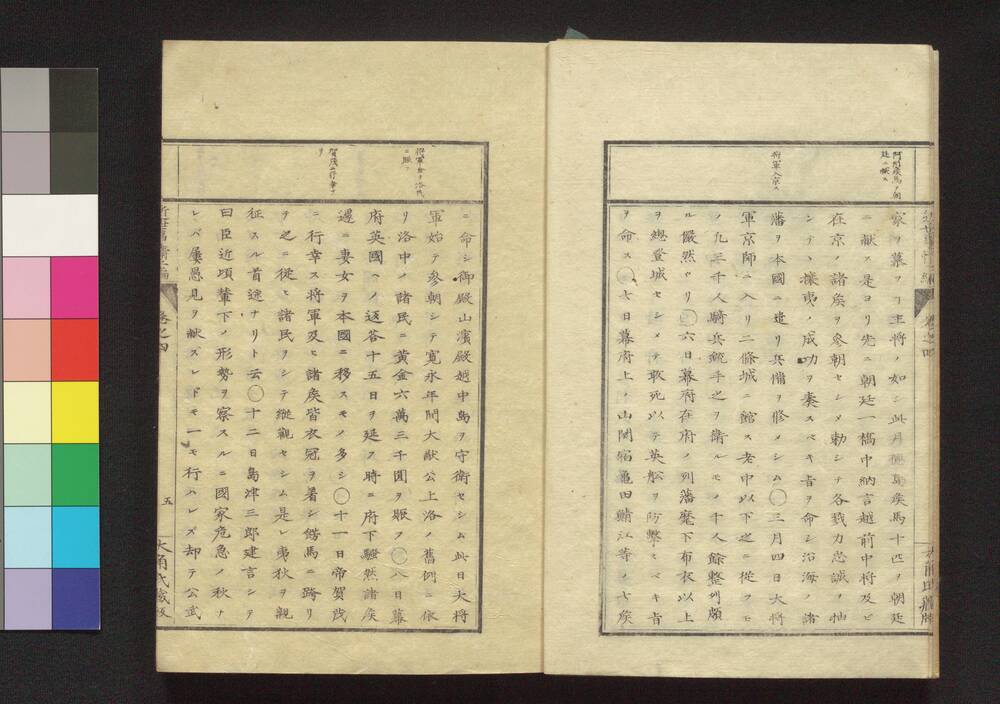 阿州侯馬ヲ朝
廷ニ献ス
家ヲ慕フ主将ノ如シ此月徳島侯馬十匹ヲ朝廷
ニ献ス是ヨリ先ニ朝廷一橋中納言越前中将及ヒ
在京ノ諸侯ヲ参朝セシメ勅シテ各戮力忠誠ヲ抽
ンテヽ攘夷ノ成功ヲ奏スベキ旨ヲ命シ沿海ノ諸
将軍入京ス
藩ヲ本國ニ遣リ兵備ヲ修メシム〇三月四日大将
軍京師ニ入リ二條城ニ館ス老中以下之ニ從フモ
ノ九三千人騎兵銃手之ヲ衛ルモノ千人餘整列頗
ル嚴然タリ〇六日幕府在府ノ列藩麾下布衣以上
ヲ總登城セシメテ敢死以テ英舩ヲ防撃スベキ旨
ヲ命ス〇七日幕府上ノ山関宿亀田鯖江等ノ七侯
巻之四
ニ命シ御殿山濱殿越中島ヲ守衛セシム此日大将
将軍金ヲ洛民
ニ賑フ
軍始テ参朝シテ寛永年間大猷公上洛ノ舊例ニ依
リ洛中ノ諸民ニ黄金六萬三千圓ヲ賑フ〇八日幕
府英國ヘノ返答十五日ヲ延ス時ニ府下騒然諸侯
邊ニ妻女ヲ本國ニ移スモノ多シ〇十一日帝賀茂
賀茂ニ行幸ス
ニ行幸ス将軍及ヒ諸侯皆衣冠ヲ着シ鐙馬ニ跨リ
ヲ之ニ從ヒ諸民ヲシテ縦觀セシム是レ夷狄ヲ親
征スル首途ナリト云〇十二日島津三郎建言シテ
曰臣近頃輦下ノ形勢ヲ察スルニ國家危急ノ秋ナ
レバ屡愚見ヲ献ズレドモ一モ行ハレズ却テ公武
巻之四
五